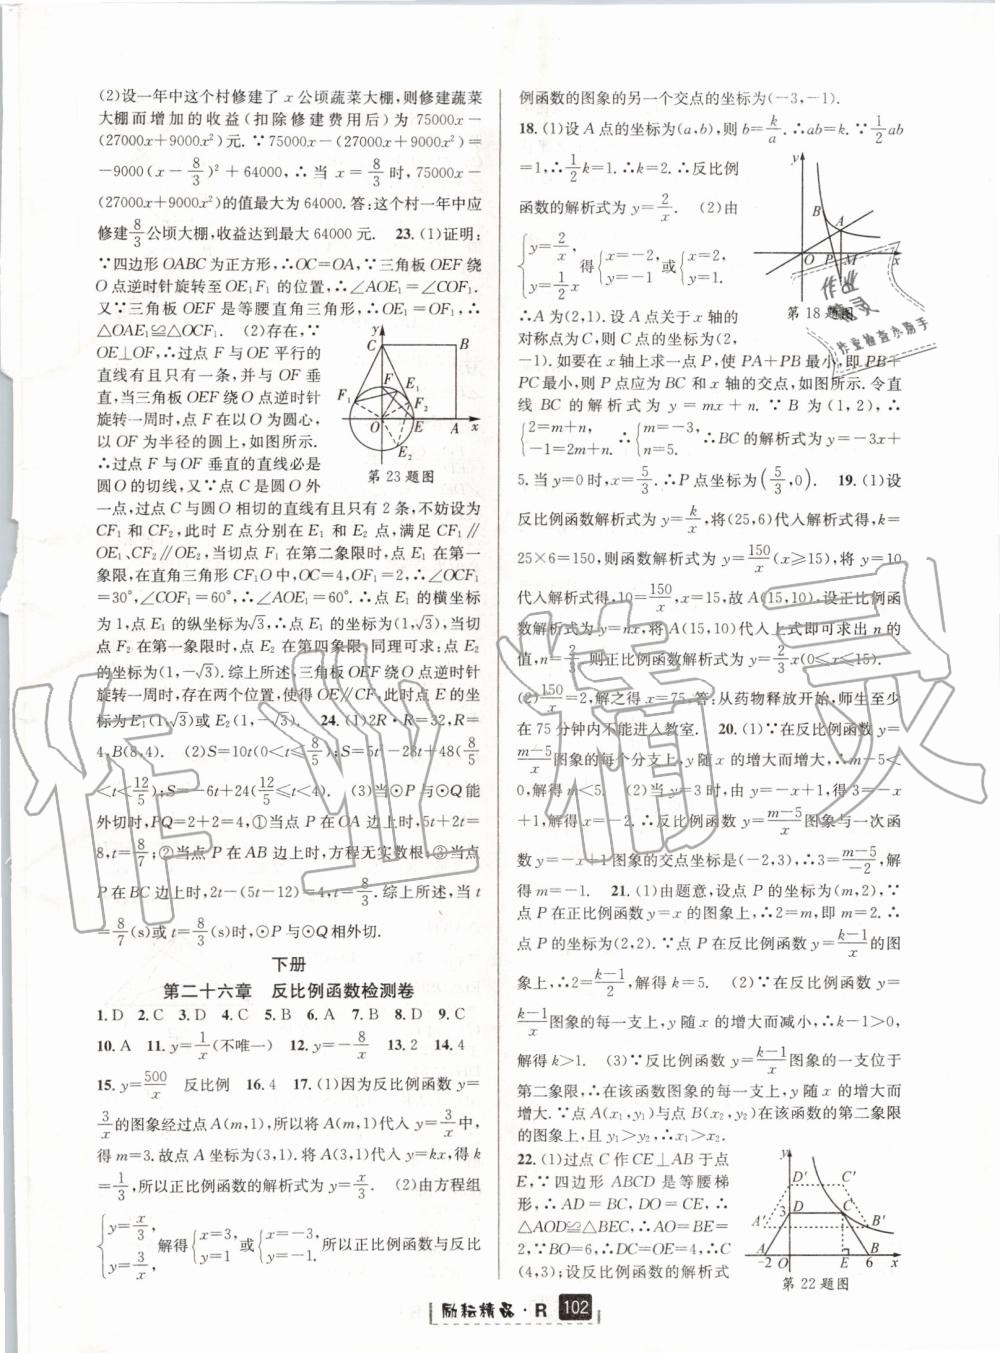 (2)设一年中这个村修建了 x 公顷蔬菜大棚,则修建蔬菜
大棚而增加的收益(扣除修建费用后)为 75000x－
(27000x＋9000x²)元. ∵75000x－(27000x＋9000x²)＝
－9000(x－8/3)²＋64000,∴当 x＝8/3 时,75000x－
(27000x＋9000x²)的值最大为 64000. 答:这个村一年中应
修建8/3公顷大棚,收益达到最大 64000 元. 23. (1)证明:
∵四边形 OABC 为正方形,∴OC＝OA,∵三角板 OEF 绕
O 点逆时针旋转至 OE₁F₁ 的位置,∴∠AOE₁＝∠COF₁.
又∵三角板 OEF 是等腰直角三角形,∴OE₁＝OF₁,∴
△OAE₁≌△OCF₁. (2)存在,∵
OE⊥OF,∴过点 F 与 OE 平行的
直线有且只有一条,并与 OF 垂
直,当三角板 OEF 绕 O 点逆时针
旋转一周时,点 F 在以 O 为圆心,
以 OF 为半径的圆上,如图所示.
∴过点 F 与 OF 垂直的直线必是
圆 O 的切线,又∵点 C 是圆 O 外
一点,过点 C 与圆 O 相切的直线有且只有 2 条,不妨设为
CF₁ 和 CF₂,此时 E 点分别在 E₁ 和 E₂ 点,满足 CF₁∥
OE₁、CF₂∥OE₂,当切点 F₁ 在第二象限时,点 E₁ 在第一
象限,在直角三角形 CF₁O 中,OC＝4,OF₁＝2,∴∠OCF₁
＝30°,∠COF₁＝60°,∴∠AOE₁＝60°. ∴点 E₁ 的横坐标
为 1,点 E₁ 的纵坐标为√3,∴点 E₁ 的坐标为(1,√3),当切
点 F₂ 在第一象限时,点 E₂ 在第四象限,同理可求:点 E₂
的坐标为(1,－√3). 综上所述,三角板 OEF 绕 O 点逆时针
旋转一周时,存在两个位置,使得 OE∥CF,此时点 E 的坐
标为 E₁(1,√3)或 E₂(1,－√3). 24. (1)2R·R＝32,R＝
4,B(8,4). (2)S＝10t(0＜t≤8/5);S＝5t²－28t＋48(8/5
＜t≤12/5);S＝－6t＋24(12/5≤t≤4). (3)当⊙P 与⊙Q 能
外切时,PQ＝2＋2＝4,①当点 P 在 OA 边上时,5t＋2t＝
8,t＝8/7;②当点 P 在 AB 边上时,方程无实数根;③当点
P 在 BC 边上时,2t－(5t－12)＝4,t＝8/3. 综上所述,当 t
＝8/7(s)或 t＝8/3(s)时,⊙P 与⊙Q 相外切.
y C B F E₁ F₁ F₂ O E A x E₂
第 23 题图
下册
第二十六章 反比例函数检测卷
1. D 2. C 3. D 4. C 5. B 6. A 7. B 8. D 9. C
10. A 11. y＝1/x(不唯一) 12. y＝－8/x 13. 2 14. 4
15. y＝500/x 反比例 16. 4 17. (1)因为反比例函数 y＝
3/x的图象经过点 A(m,1),所以将 A(m,1)代入 y＝3/x中,
得 m＝3. 故点 A 坐标为(3,1). 将 A(3,1)代入 y＝kx,得 k
＝1/3,所以正比例函数的解析式为 y＝x/3. (2)由方程组
{y＝x/3, y＝3/x, 解得{x＝3, y＝1 或{x＝－3, y＝－1. 所以正比例函数与反比
例函数的图象的另一个交点的坐标为(－3,－1).
18. (1)设 A 点的坐标为(a,b),则 b＝k/a. ∴ab＝k. ∵1/2ab
＝1,∴1/2k＝1. ∴k＝2. ∴反比例
函数的解析式为 y＝2/x. (2)由
{y＝2/x, y＝x/2 得{x＝－2, y＝－1 或{x＝2, y＝1.
∴A 为(2,1). 设 A 点关于 x 轴的
对称点为 C,则 C 点的坐标为(2,
－1). 如要在 x 轴上求一点 P,使 PA＋PB 最小,即 PB＋
PC 最小,则 P 点应为 BC 和 x 轴的交点,如图所示. 令直
线 BC 的解析式为 y＝mx＋n. ∵B 为(1,2),∴
{2＝m＋n, －1＝2m＋n. ∴{m＝－3, n＝5. ∴BC 的解析式为 y＝－3x＋
5. 当 y＝0 时,x＝5/3. ∴P 点坐标为(5/3,0). 19. (1)设
反比例函数解析式为 y＝k/x,将(25,6)代入解析式得,k＝
25×6＝150,则函数解析式为 y＝150/x(x≥15),将 y＝10
代入解析式得,10＝150/x,x＝15,故 A(15,10),设正比例函
数解析式为 y＝nx,将 A(15,10)代入上式即可求出 n 的
值,n＝2/3. 则正比例函数解析式为 y＝2/3x(0≤x≤15).
(2)150/x＝2,解之得 x＝75. 答:从药物释放开始,师生至少
在 75 分钟内不能进入教室. 20. (1)∵在反比例函数 y＝
(m－5)/x图象的每个分支上,y 随 x 的增大而增大,∴m－5＜
0,解得 m＜5. (2)当 y＝3 时,由 y＝－x＋1,得 3＝－x
＋1,解得 x＝－2. ∴反比例函数 y＝(m－5)/x图象与一次函
数 y＝－x＋1图象的交点坐标是(－2,3),∴3＝(m－5)/－2,解
得 m＝－1. 21. (1)由题意,设点 P 的坐标为(m,2),∵
点 P 在正比例函数 y＝x 的图象上,∴2＝m,即 m＝2. ∴
点 P 的坐标为(2,2). ∵点 P 在反比例函数 y＝(k－1)/x的图
象上,∴2＝(k－1)/2,解得 k＝5. (2)∵在反比例函数 y＝
(k－1)/x图象的每一支上,y 随 x 的增大而减小,∴k－1＞0,
解得 k＞1. (3)∵反比例函数 y＝(k－1)/x图象的一支位于
第二象限,∴在该函数图象的每一支上,y 随 x 的增大而
增大. ∵点 A(x₁,y₁)与点 B(x₂,y₂)在该函数的第二象限
的图象上,且 y₁＞y₂,∴x₁＞x₂.
22. (1)过点 C 作 CE⊥AB 于点
E,∵四边形 ABCD 是等腰梯
形,∴AD＝BC,DO＝CE,∴
△AOD≌△BEC,∴AO＝BE＝
2,∵BO＝6,∴DC＝OE＝4,∴C
(4,3);设反比例函数的解析式
y B A O P M x C
第 18 题图
y D′ C′ 3 D C A′ B′ A －2 O E B 6 x
第 22 题图
作业精灵
作业检查小助手
励耘精品·R 102